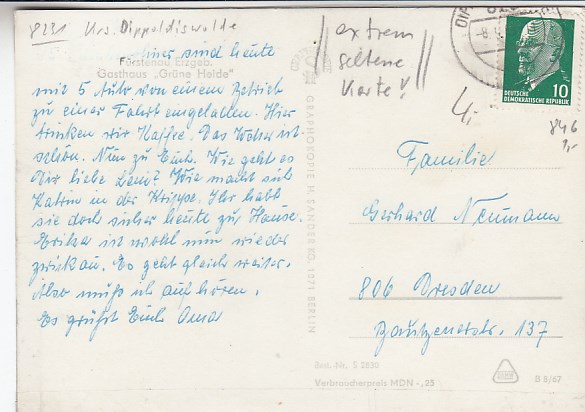 8231 Krs. Dippoldiswalde
sind heute
Fürstenau Erzgeb.
Gasthaus „Grüne Heide"
mit 5 Autos von einem Betrieb
zu einer Fahrt eingeladen. Hier
trinken wir Kaffee. Das Wetter ist
schön. Nun zu Euch. Wie geht es
Dir liebe Leni? Wie macht sich
Katrin in der Krippe. Ihr habt
sie doch sicher heute zu Hause.
Erika ist wohl nun wieder
zurück an. Es geht gleich weiter.
Also muß ich aufhören.
Es grüßt Euch Oma
extrem
seltene
Karte!!
4,-
GRAPHOKOPIE H. SANDER KG, 1071 BERLIN
DEUTSCHE
DEMOKRATISCHE REPUBLIK
10
846
Familie
Gerhard Neumann
806 Dresden
Bautznerstr. 137
Best.-Nr. S 2830
Verbraucherpreis MDN -,25
B 8/67